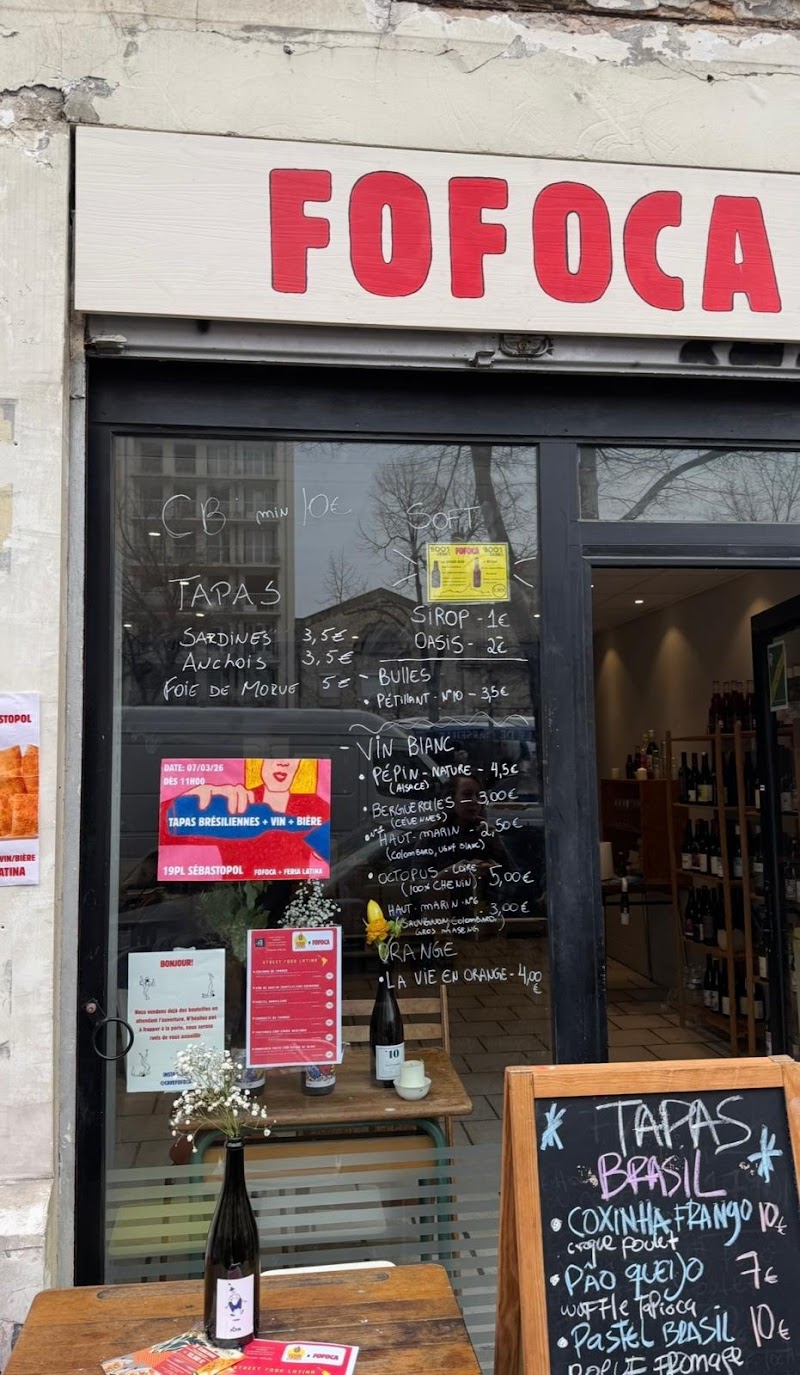 FOFOCA
CB min 10€
TAPAS
SARDINES 3,5€
ANCHOIS 3,5€
FOIE DE MORUE 5€
SOFT
FOFOCA
SIROP - 1€
OASIS - 2€
BULLES
• PÉTILLANT - N°10 - 3,5€
VIN BLANC
• PÉPIN - NATURE - 4,5€
(ALSACE)
• BERGUEROLLES - 3,00€
(CÉVENNES)
HAUT-MARIN - 2,50€
(COLOMBARD, UGNI BLANC)
• OCTOPUS - LOIRE 5,00€
(100% CHENIN)
HAUT-MARIN - N°6 3,00€
(SAUVIGNON, COLOMBARD
GROS MANSENG
ORANGE
• LA VIE EN ORANGE - 4,00
€
DATE: 07/03/26
DÈS 11H00
TAPAS BRÉSILIENNES + VIN + BIÈRE
19PL SÉBASTOPOL FOFOCA + FERIA LATINA
STOPOL
VIN/BIÈRE
ATINA
BONJOUR!
Nous vendons déjà des bouteilles en
attendant l'ouverture. N'hésitez pas
à frapper à la porte, nous serons
ravis de vous accueillir
FOFOCA
STREET FOOD LATINA
10
TAPAS
BRASIL
• COXINHA FRANGO 10€
croque poulet
• PÃO QUEIJO 7€
waffle tapioca
• PASTEL BRASIL 10€
FROMAGE
+ FOFOCA
STREET FOOD LATINA